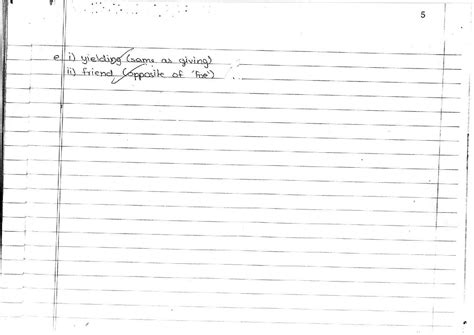 5
e i) yielding (same as giving)
ii) friend (opposite of 'foe')